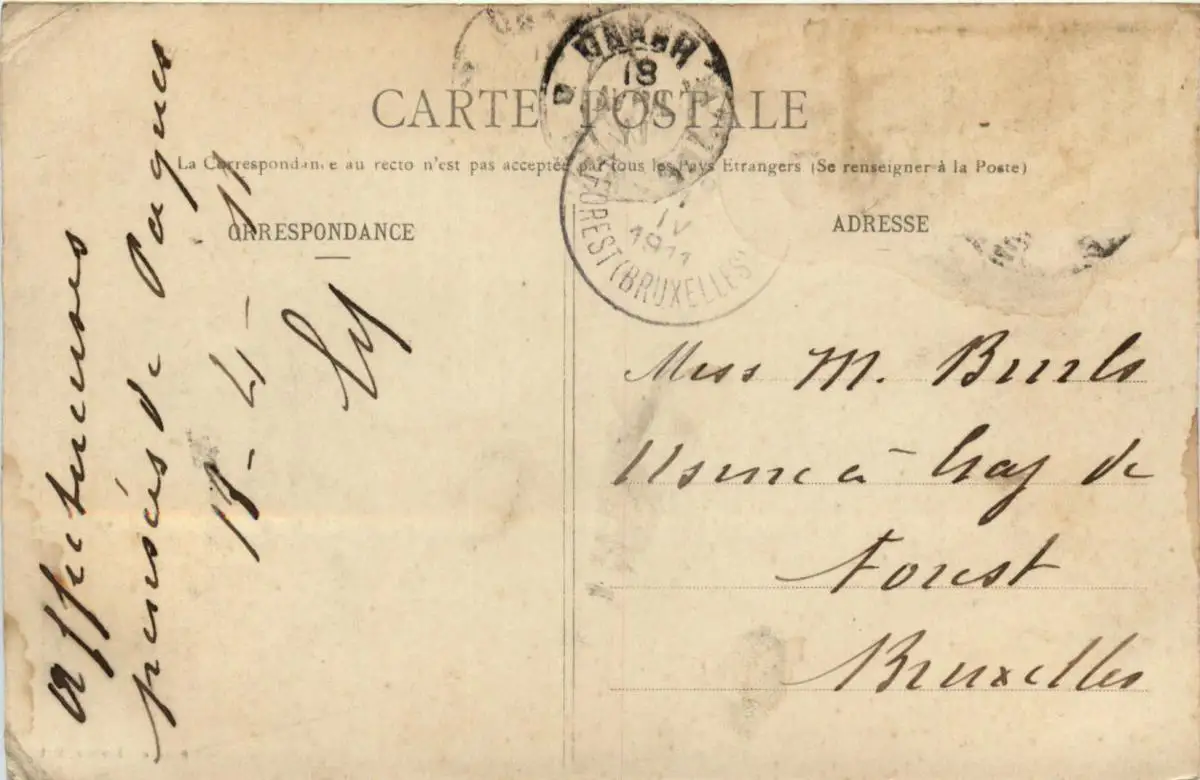 CARTE POSTALE
La Correspondance au recto n'est pas acceptée par tous les Pays Etrangers (Se renseigner à la Poste)
CORRESPONDANCE
ADRESSE
DAKAR
18
FOREST (BRUXELLES)
IV
1911
affectueuses
pensées de Paques
4 - 11
Miss M.
Usine à Gaz de
Forest
Bruxelles